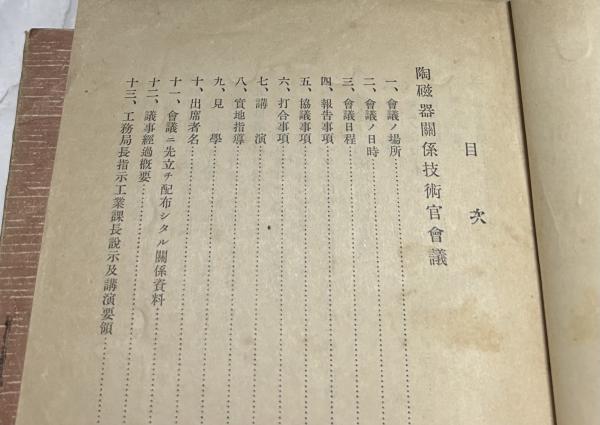 目次
陶磁器關係技術官會議
一、會議ノ場所
二、會議ノ日時
三、會議日程
四、報告事項
五、協議事項
六、打合事項
七、講演
八、實地指導
九、見學
十、出席者名
十一、會議ニ先立チ配布シタル關係資料
十二、議事經過概要
十三、工務局長指示工業課長說示及講演要領